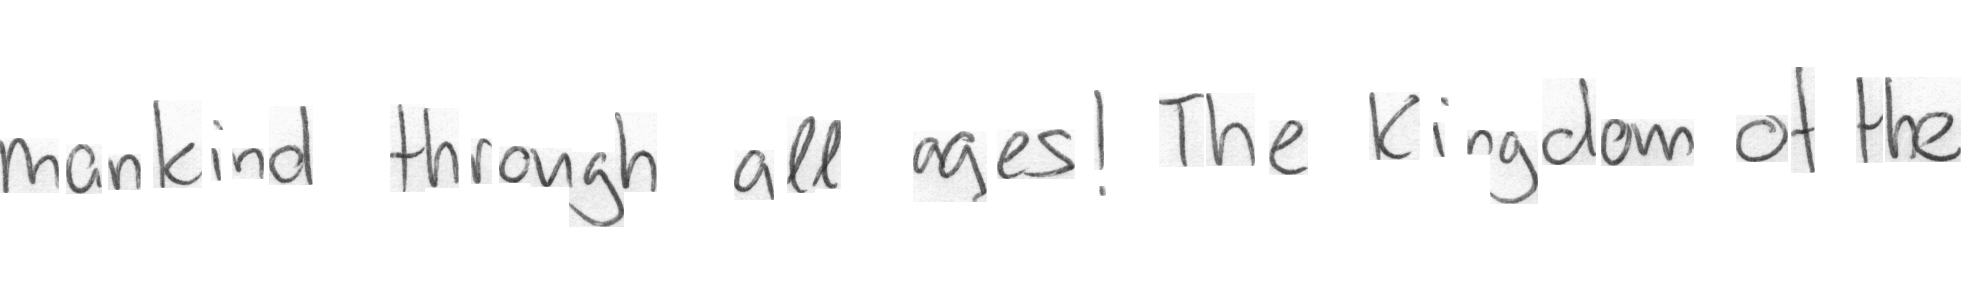 mankind through all ages! The Kingdom of the